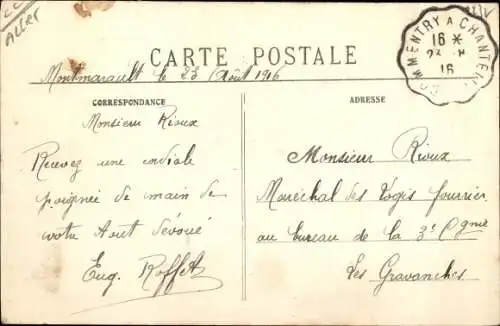 Aller
COMMENTRY A CHANTEL
16 *
23 - 8
16
CARTE POSTALE
Montmarault le 23 Août 1916
CORRESPONDANCE
Monsieur Rioux
Recevez une cordiale
poignée de main de
votre tout dévoué
Eug. Roffet
ADRESSE
Monsieur Rioux
Maréchal des Logis fourrier
au bureau de la 3e Cgnie
Les Gravanches